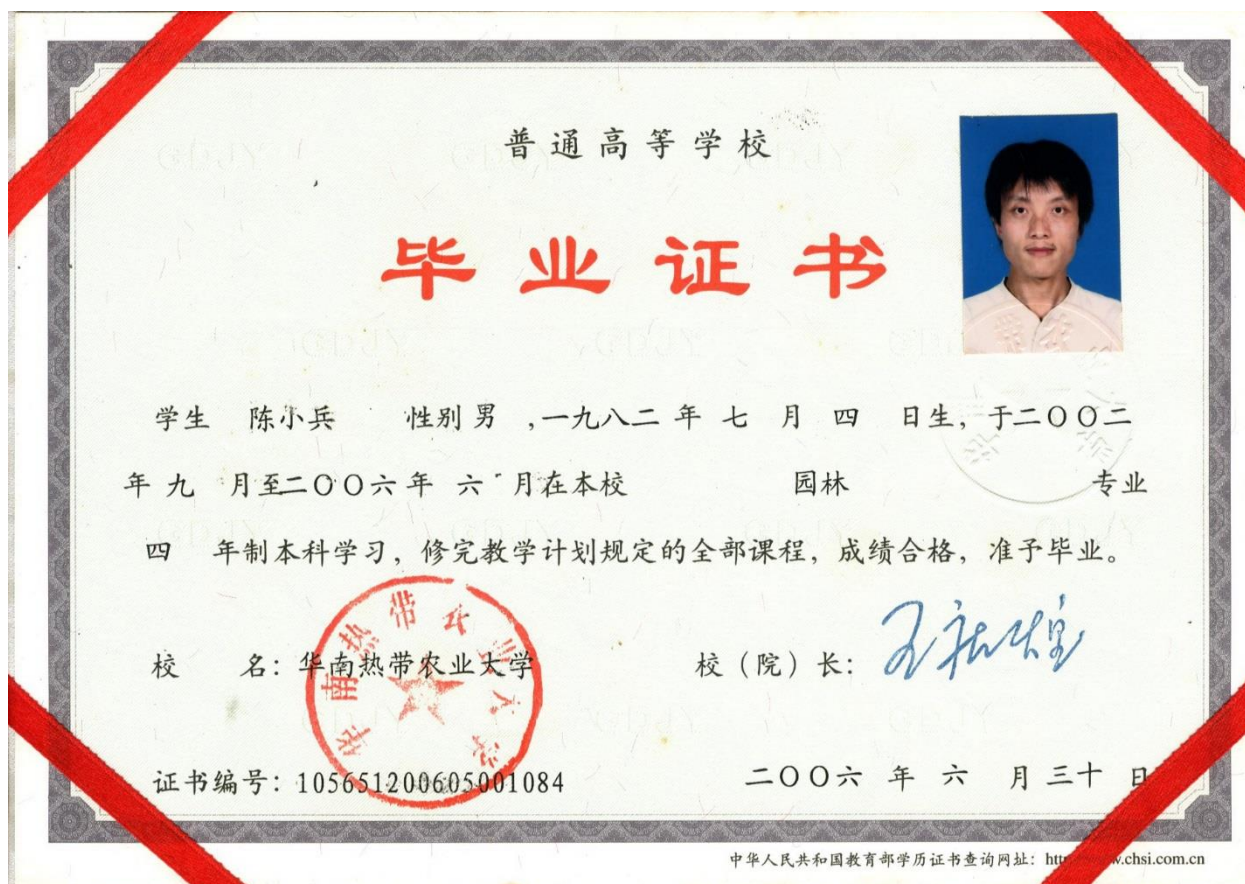 普通高等学校
毕业证书
学生 陈小兵 性别 男 ,一九八二 年 七 月 四 日生, 于二〇〇二
年 九 月至二〇〇六 年 六 月在本校 园林 专业
四 年制本科学习, 修完教学计划规定的全部课程, 成绩合格, 准予毕业。
校 名: 华南热带农业大学 校 (院) 长:
华南热带农业大学
证书编号: 105651200605001084 二〇〇六 年 六 月 三十 日
中华人民共和国教育部学历证书查询网址: http w.chsi.com.cn